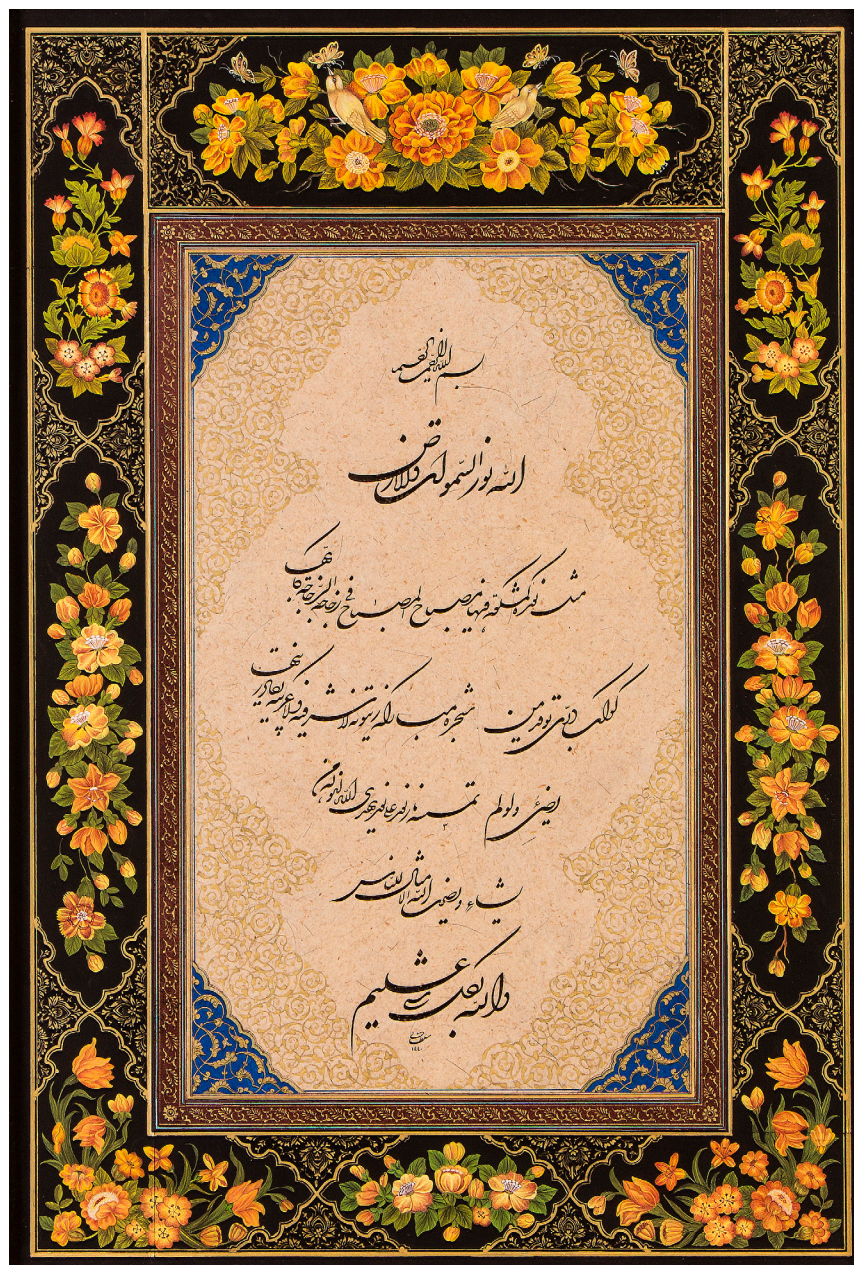 بسم الله الرحمن الرحیم
الله نور السموات والارض
مثل نوره کمشکوة فیها مصباح المصباح فی زجاجة الزجاجة کانها
کوکب دری توقد من شجرة مبارکة زیتونة لا شرقیة ولا غربیة یکاد زیتها
یضیء ولو لم تمسسه نار نور علی نور یهدی الله لنوره من
یشاء ویضرب الله الامثال للناس
والله بکل شیء علیم
۱۴۴۰